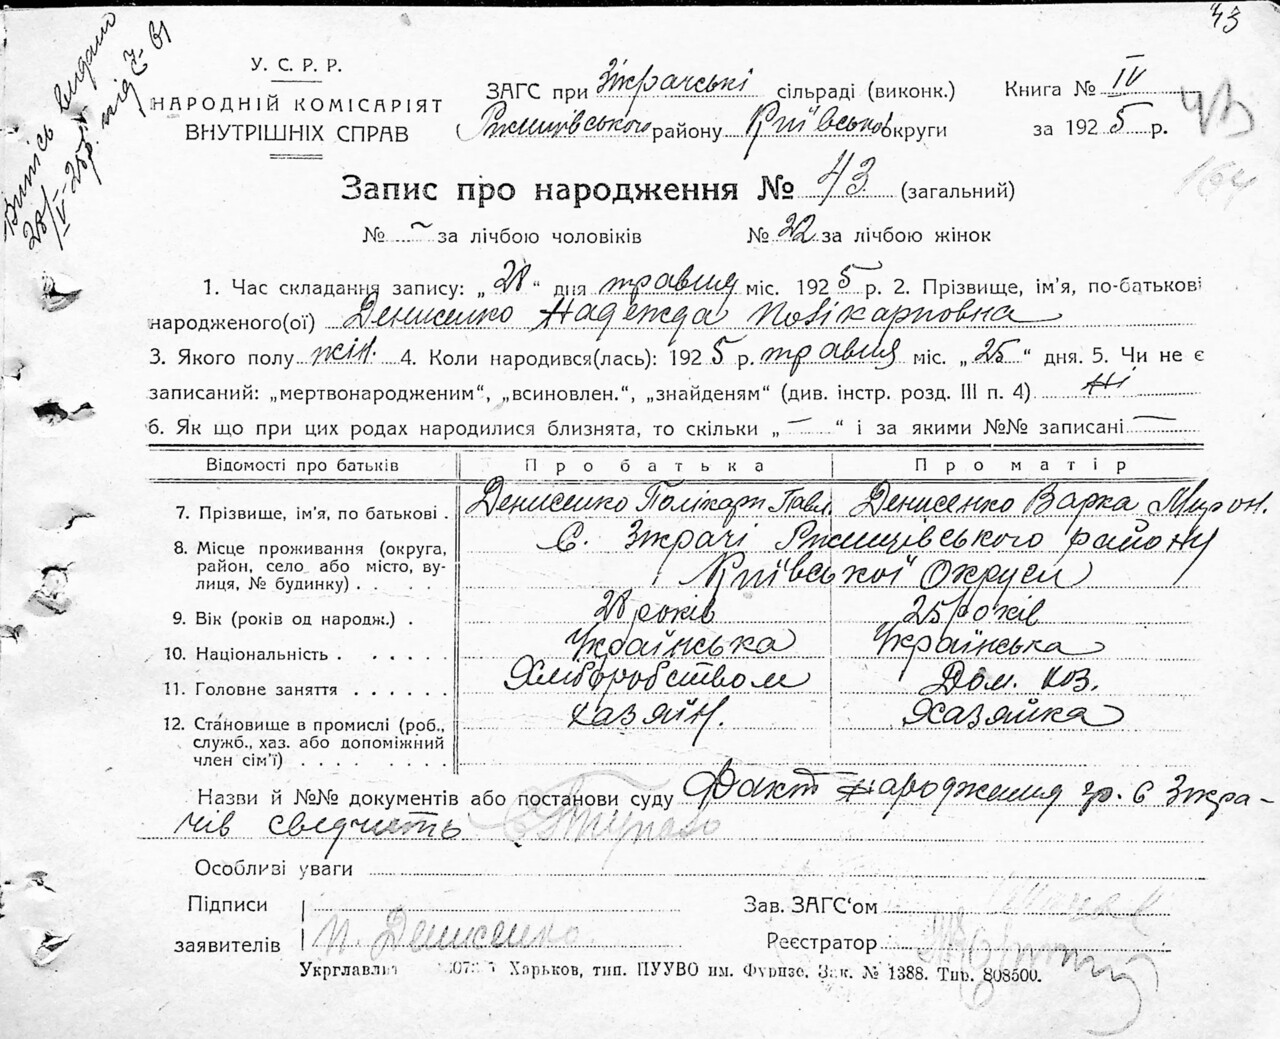 43
Випись видано
28/IV-25 р. під № 61
У. С. Р. Р.
НАРОДНІЙ КОМІСАРІЯТ
ВНУТРІШНІХ СПРАВ
ЗАГС при Зікрачські сільраді (виконк.)
Ржищівського району Київської округи
Книга № IV
за 1925 р.
43
164
Запис про народження № 43 (загальний)
№ — за лічбою чоловіків № 22 за лічбою жінок
1. Час складання запису: „28“ дня травня міс. 1925 р. 2. Прізвище, ім’я, по-батькові
народженого(ої) Денисенко Надежда Полікарповна
3. Якого полу жін. 4. Коли народився(лась): 1925 р. травня міс. „25“ дня. 5. Чи не є
записаний: „мертвонародженим“, „всиновлен.“, „знайденям“ (див. інстр. розд. III п. 4) Ні
6. Як що при цих родах народилися близнята, то скільки „—“ і за якими №№ записані —
Відомості про батьків Про батька Про матір
7. Прізвище, ім’я, по батькові . Денисенко Полікарп Павл. Денисенко Варка Мирон.
8. Місце проживання (округа, с. Зікрачі Ржищівського району
район, село або місто, ву-
лиця, № будинку) . . . . . Київської Округи
9. Вік (років од народж.) . 28 років 25 років
10. Національність . . . . . . Українська Українська
11. Головне заняття . . . . . . Хліборобством Дом. хоз.
12. Становище в промислі (роб., хазяїн. Хазяйка
служб., хаз. або допоміжний
член сім’ї) . . . . . . . .
Назви й №№ документів або постанови суду Факт народження гр. с Зікра-
чів свєдчить
Особливі уваги
Підписи
заявителів П. Денисенко
Зав. ЗАГС‘ом
Реєстратор
Укрглавліт Харьков, тип. ПУУВО им. Фрунзе. Зак. № 1388. Тир. 808500.